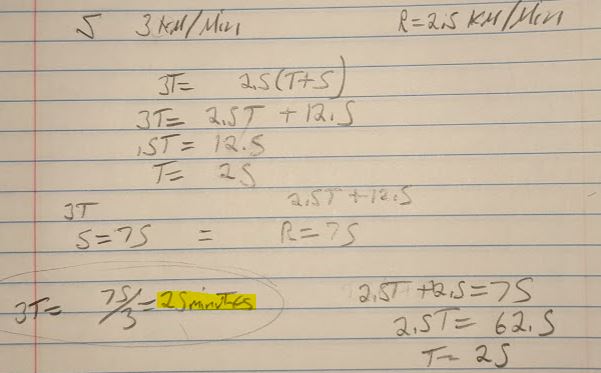 S 3 KM/Min R=2.5 KM/Min
3T= 2.5(T+5)
3T= 2.5T +12.5
.5T= 12.5
T= 25
3T 2.5T +12.5
S=75 = R=75
3T= 75/3=25minutes 2.5T +2.5=75
2.5T= 62.5
T= 25